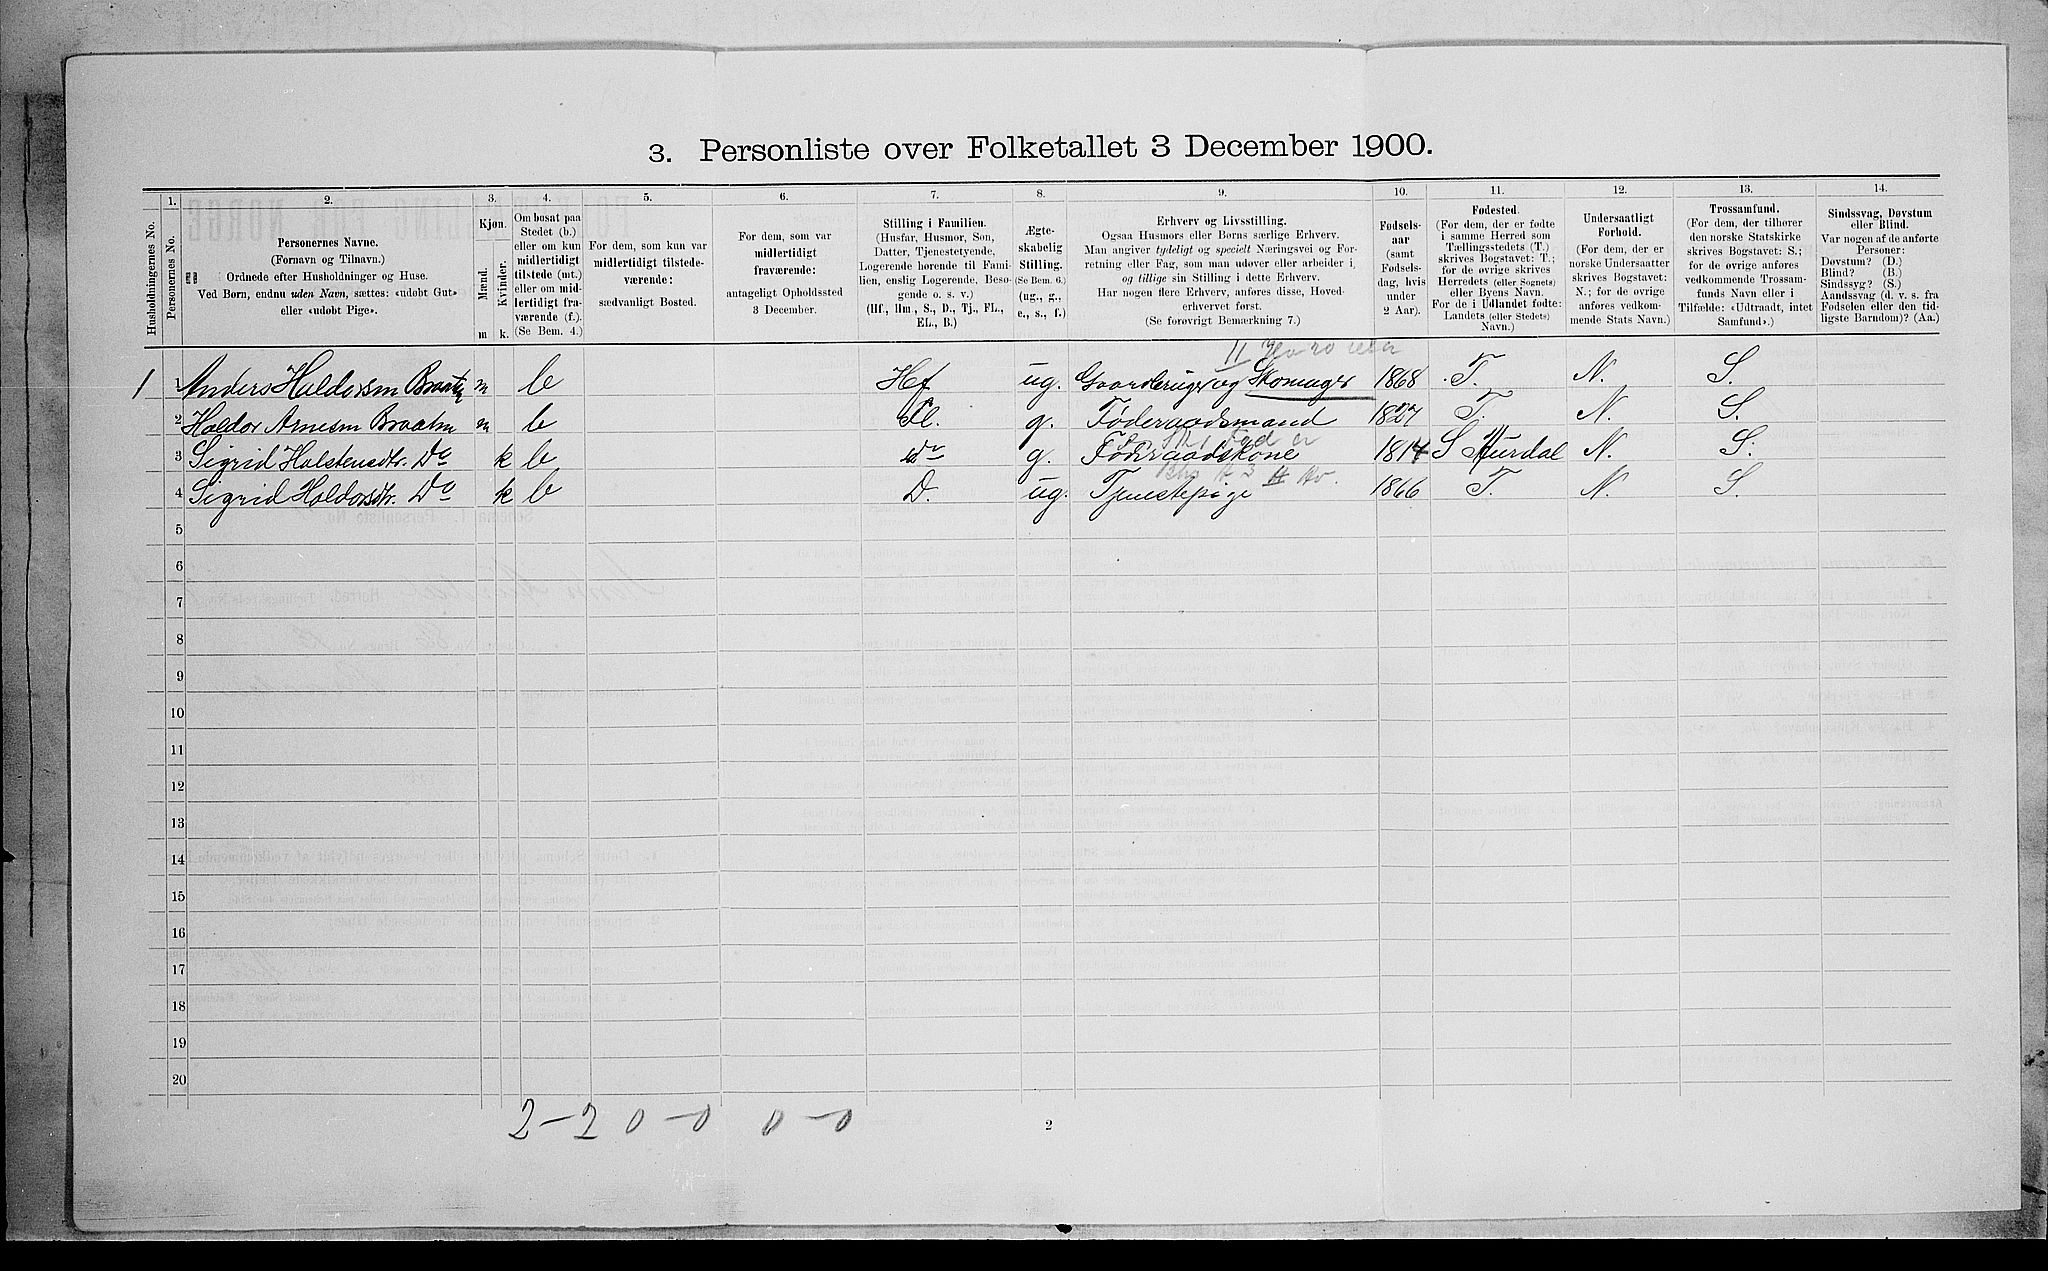 3. Personliste over Folketallet 3 December 1900.
1. 2. 3. 4. 5. 6. 7. 8. 9. 10. 11. 12. 13. 14.
Husholdningernes No.
Personernes No.
Personernes Navne.
(Fornavn og Tilnavn.)
Ordnede efter Husholdninger og Huse.
Ved Børn, endnu uden Navn, sættes: «udøbt Gut»
eller «udøbt Pige».
Kjøn.
Mænd.
Kvinder.
m k.
Om bosat paa
Stedet (b.)
eller om kun
midlertidigt
tilstede (mt.)
eller om mid-
lertidigt fra-
værende (f.).
(Se Bem. 4.)
For dem, som kun var
midlertidigt tilstede-
værende:
sædvanligt Bosted.
For dem, som var
midlertidigt
fraværende:
antageligt Opholdssted
3 December.
Stilling i Familien.
(Husfar, Husmor, Søn,
Datter, Tjenestetyende,
Logerende hørende til Fami-
lien, enslig Logerende, Besø-
gende o. s. v.)
(Hf., Hm., S., D., Tj., FL.,
EL., B.)
Ægte-
skabelig
Stilling.
(Se Bem. 6.)
(ug., g.,
e., s., f.)
Erhverv og Livsstilling.
Ogsaa Husmors eller Børns særlige Erhverv.
Man angiver tydeligt og specielt Næringsvei og For-
retning eller Fag, som man udøver eller arbeider i,
og tillige sin Stilling i dette Erhverv.
Har nogen flere Erhverv, anføres disse, Hoved-
erhvervet først.
(Se forøvrigt Bemærkning 7.)
Fødsels-
aar
(samt
Fødsels-
dag, hvis
under
2 Aar).
Fødested.
(For dem, der er fødte
i samme Herred som
Tællingsstedets (T.)
skrives Bogstavet: T.;
for de øvrige skrives
Herredets (eller Sognets)
eller Byens Navn.
For de i Udlandet fødte:
Landets (eller Stedets)
Navn.)
Undersaatligt
Forhold.
(For dem, der er
norske Undersaatter
skrives Bogstavet:
N.; for de øvrige
anføres vedkom-
mende Stats Navn.)
Trossamfund.
(For dem, der tilhører
den norske Statskirke
skrives Bogstavet: S.;
for de øvrige anføres
vedkommende Trossam-
funds Navn eller i
Tilfælde: «Udtraadt, intet
Samfund».)
Sindssvag, Døvstum
eller Blind.
Var nogen af de anførte
Personer:
Døvstum? (D.)
Blind? (B.)
Sindssyg? (S.)
Aandssvag (d. v. s. fra
Fødselen eller den tid-
ligste Barndom)? (Aa.)
1 1 Anders Haldorsen Braaten m b Hf ug. Gaardbruger og Skomager 1868 T. N. S.
2 Haldor Arnesen Braaten m b Fl. g. Føderaadsmand 1827 T. N. S.
3 Sigrid Halstensdtr. Do k b Do g. Føderaadskone 1814 S Aurdal N. S.
4 Sigrid Haldorsdtr. Do k b D. ug. Tjenestepige 1866 T. N. S.
5
6
7
8
9
10
11
12
13
14
15
16
17
18
19
20
2-2 0-0 0-0
2